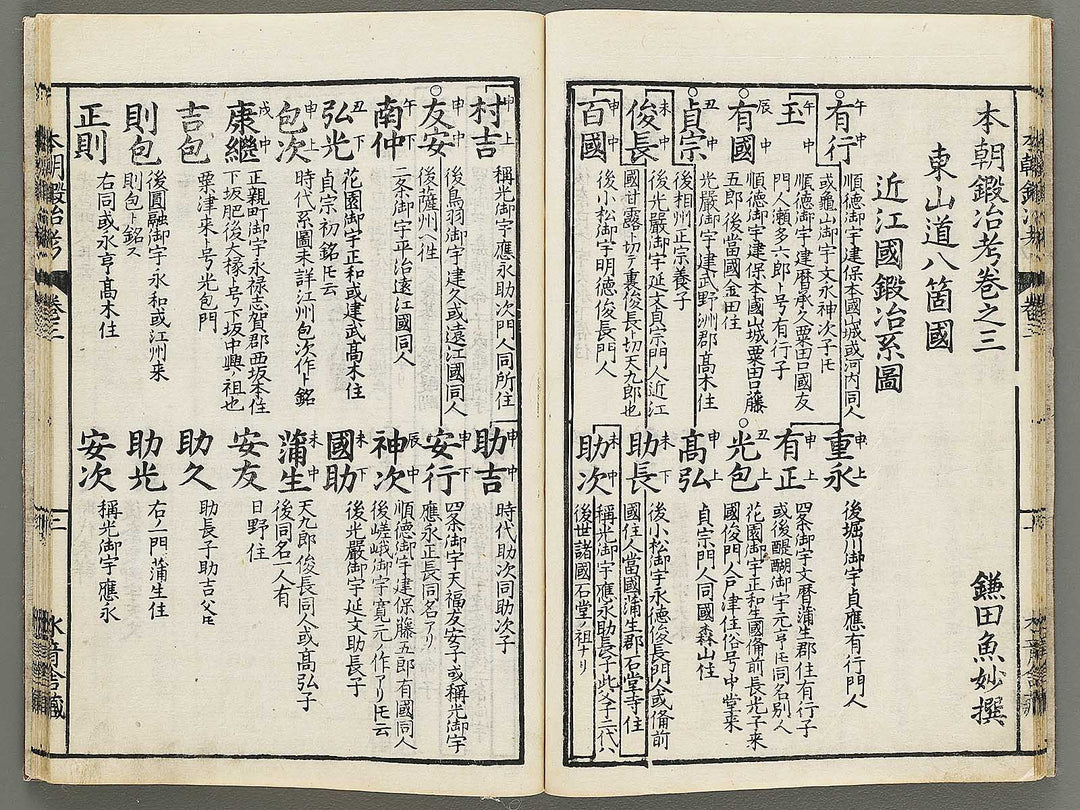 本朝鍛冶考巻之三
鎌田魚妙撰
東山道八箇國
近江國鍛冶系圖
有行 午中
順徳御宇建保本國山城或河内同人
或亀山御宇文永神次子ト云
玉 午中
順徳御宇建暦承久粟田口國友
門人瀬多六郎ト号有行子
有國 辰中
順徳御宇建保本國山城粟田口藤
五郎後當國金田住
貞宗 丑中
光嚴御宇建武野洲郡髙木住
後相州正宗養子
俊長 未中
後光嚴御宇延文貞宗門人近江
國甘露ト切テ裏俊長ト切天九郎也
百國 申中
後小松御宇明德俊長門人
重永 申上
後堀川御宇貞應有行門人
有正 申上
四条御宇文暦蒲生郡住有行子
或後醍醐御宇元亨ト云同名別人
光包 丑上
花園御宇正和生國備前長光子来
國俊門人戸津住俗号中堂来
髙弘 申上
貞宗門人同國森山住
助長 未下
後小松御宇永德俊長門人或備前
國住人當國蒲生郡石堂寺住
助次 未中
稱光御宇應永助長子此父子二代ハ
後世諸國石堂ノ祖ナリ
村吉 申上
稱光御宇應永助次門人同所住
友安 申中
後鳥羽御宇建久或遠江國同人
後薩州ヘ徃
南仲 午下
二条御宇平治遠江國同人
弘光 丑下
花園御宇正和或建武髙木住
貞宗ノ初銘ト云
包次 申上
時代系圖未詳江州包次作ト銘
康繼 戌中
正親町御宇永禄志賀郡西坂本住
下坂肥後大掾ト号下坂中興ノ祖也
吉包
粟津来ト号光包門
則包
後圓融御宇永和或江州来
則包ト銘ス
正則
右同或永亨髙木住
助吉 申中
時代助次同助次子
安行 申下
四条御宇天福友安子或稱光御宇
應永正長同名アリ
神次 辰中
順徳御宇建保藤五郎有國同人
後嵯峨御宇寛元ノ作アリト云
國助 未下
後光嚴御宇延文助長子
蒲生 未中
天九郎俊長同人或髙弘子
後同名一人有
安友
日野住
助久
助長子助吉父ト云
助光
右ノ一門蒲生住
安次
稱光御宇應永
本朝鍛冶考
巻三
三
水音舎蔵